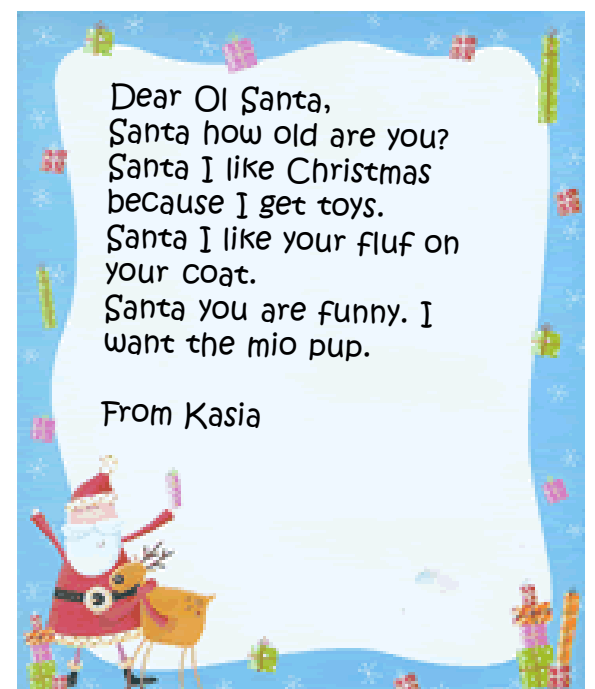 Dear Ol Santa,
Santa how old are you?
Santa I like Christmas
because I get toys.
Santa I like your fluf on
your coat.
Santa you are funny. I
want the mio pup.
From Kasia